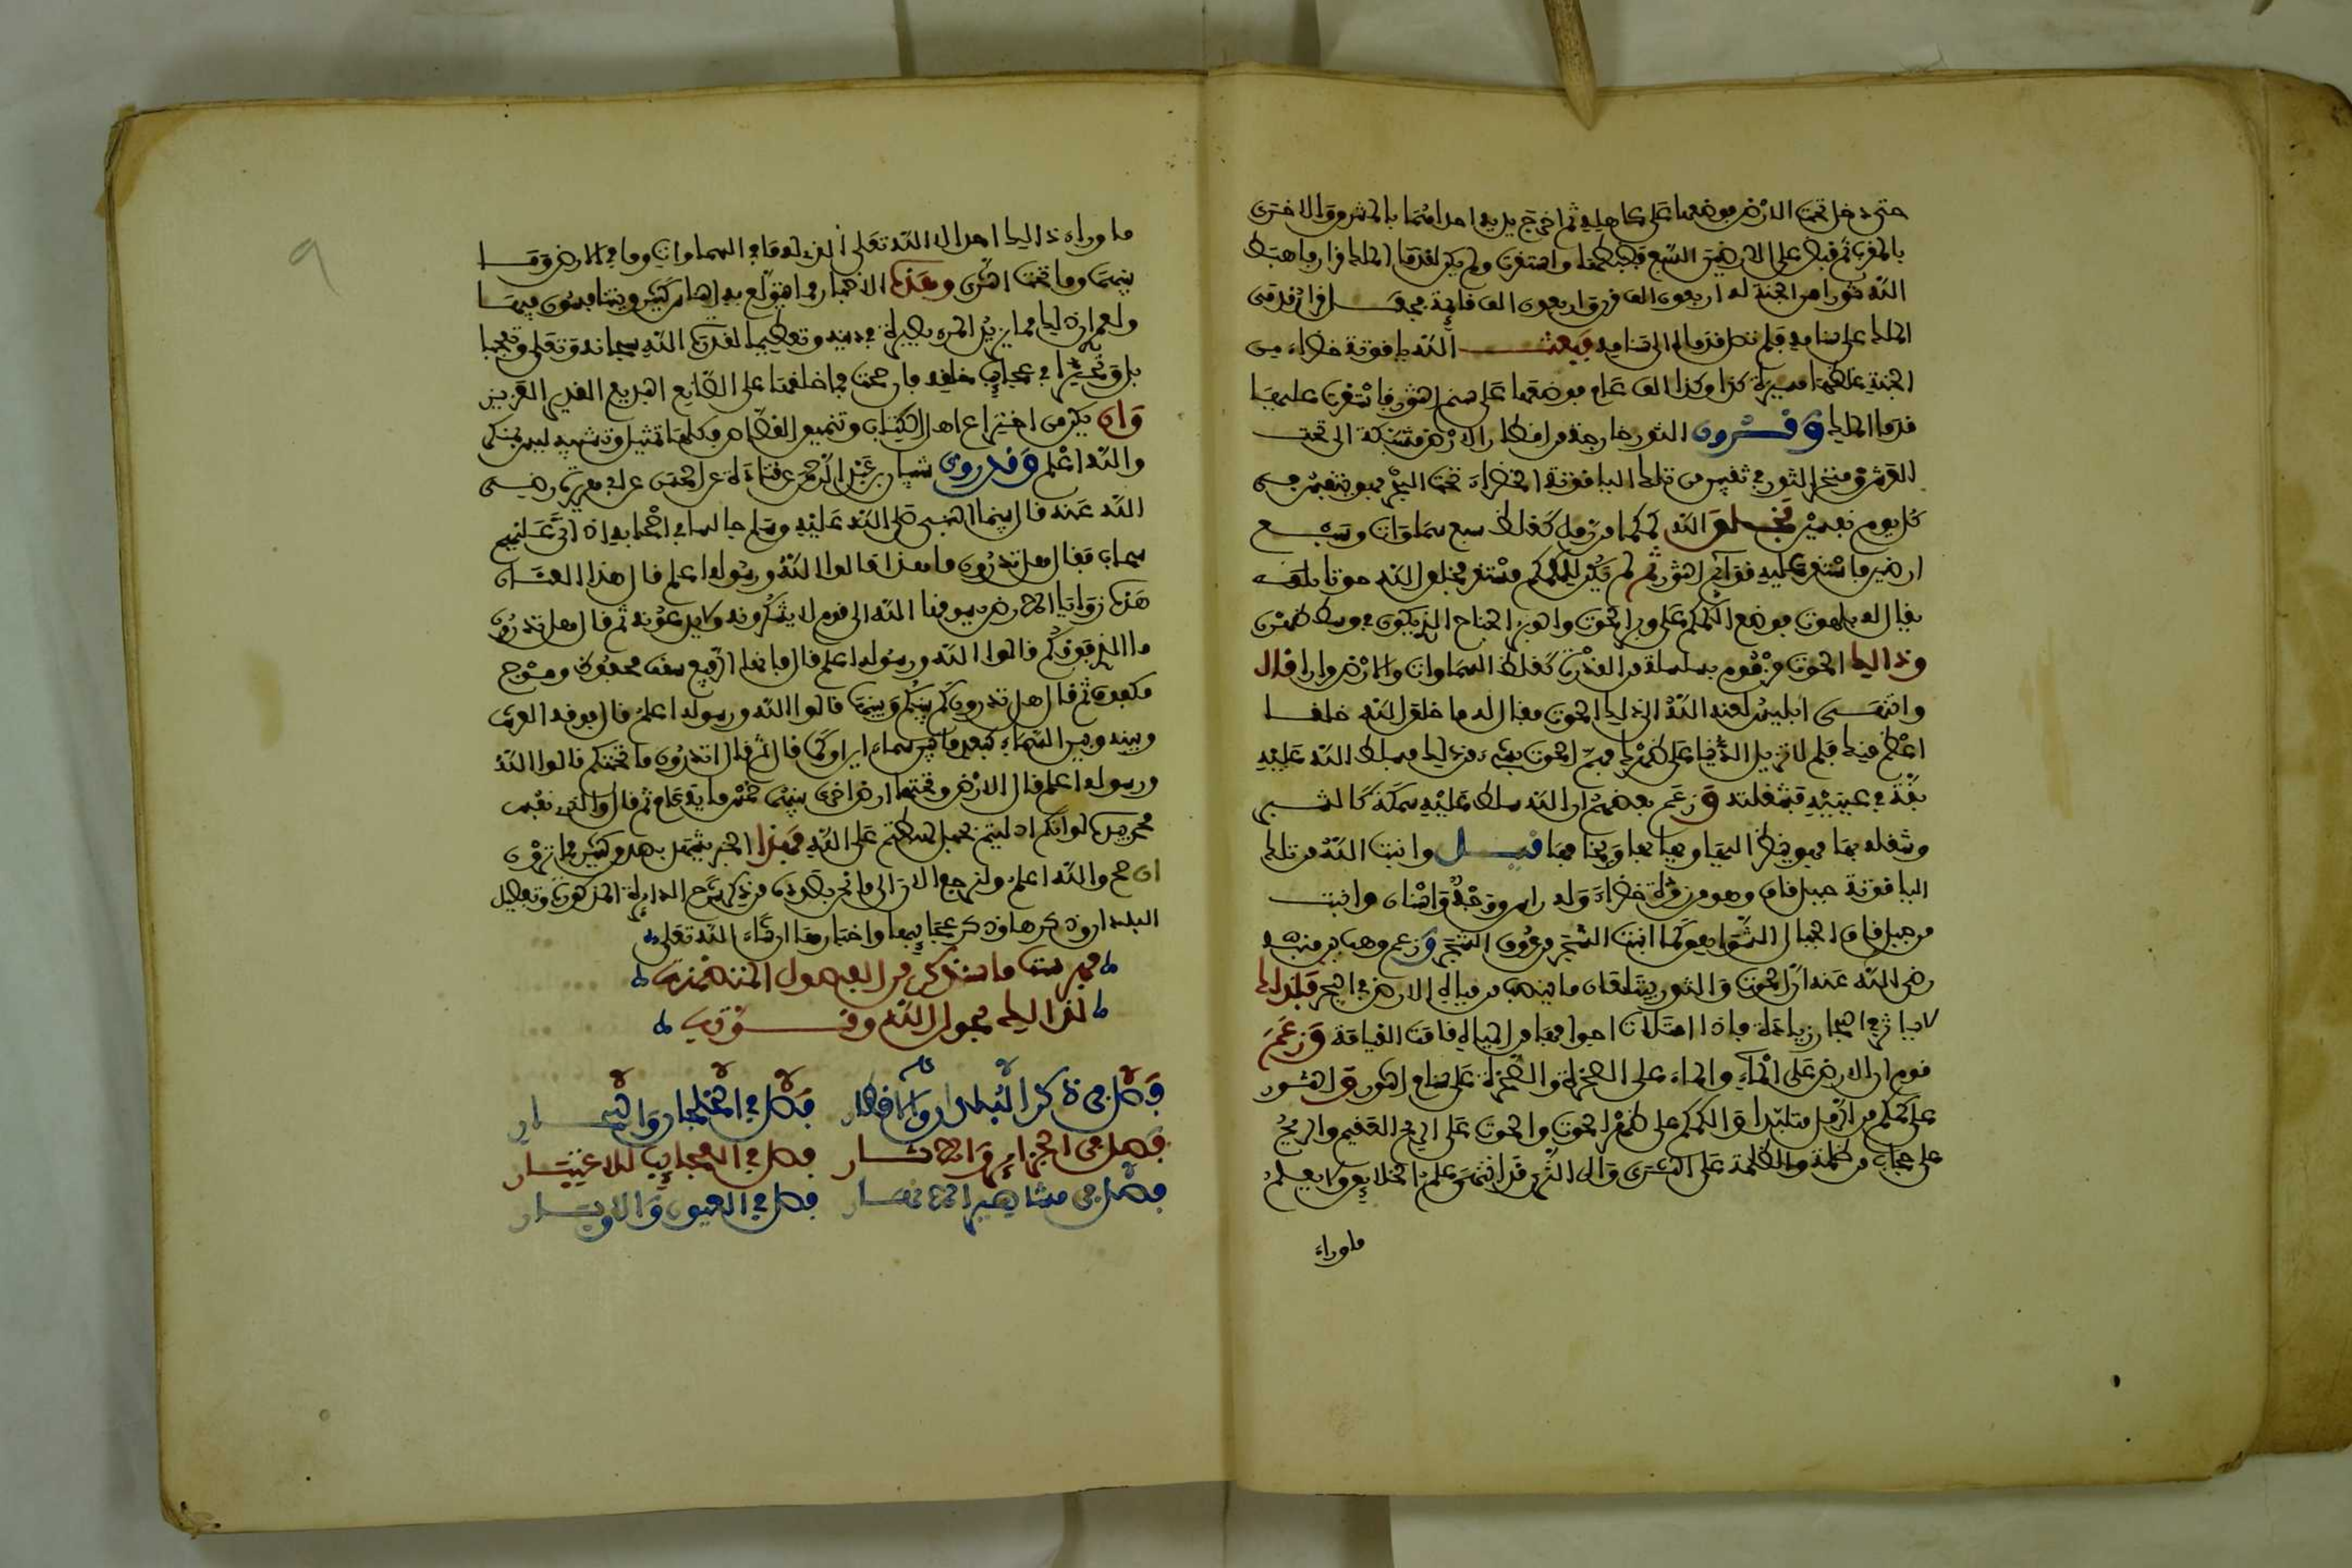 حتى دخل تحت الارض فوضعها على كاهله ثم اخرج يديه احداهما بالمشرق والاخرى
بالمغرب ثم قبض على الارضين السبع فضبطها واستقرت ولم يكن لقدم الملك قرار فاهبط
الله ثورا من الجنة له اربعون الف قرن واربعون الف قايمة فجعل قرار قدمى
الملك على سنامه فلم تصل قدماه الى سنامه فبعث الله ياقوتة خضراء من
الجنة غلظها مسيرة كذا وكذا الف عام فوضعها على سنم الثور فاستقرت عليها
قدما الملك وقرون الثور خارجة من اقطار الارض مشبكة الى تحت
العرش ومنخر الثور في ثقبين من تلك الياقوتة الخضراء تحت البحر فهو يتنفس في
كل يوم نفسين فخلق الله كمكما من رمل كغلظ سبع سماوات وسبع
ارضين فاستقر عليه قوائم الثور ثم لم يكن للكمكم مستقر فخلق الله حوتا
يقال له بلهوت فوضع الكمكم على وبر الحوت والوبر الجناح الذي يكون في وسط ظهره
وذالك الحوت مزموم بسلسلة من القدرة كغلظ السماوات والارض مرارا قال
وانتهى ابليس لعنه الله الى ذلك الحوت فقال له ما خلق الله خلقا
اعظم منك فلم لا تزيل الدنيا على ظهرك فهم الحوت بشيء من ذلك فسلط الله عليه
بقة في عينيه فشغلته وزعم بعضهم ان الله سلط عليه سمكة كالشبر
وشغله بها فهو ينظر اليها ويهابها ويخافها قيل وانبت الله من تلك
الياقوتة جبل قاف وهو من زمردة خضراء وله راس ووجه واسنان وانبت
من جبل قاف الجبال الشواهق كما انبت الشجر من عروق الشجر وزعم وهب بن منبه
رضي الله عنه ان الحوت والثور يبتلعان ما ينصب من مياه الارض في البحر فلذلك
لا يوثر في البحار زيادة فاذا امتلات اجوافهما من المياه قامت القيامة وزعم
قوم ان الارض على الماء والماء على الصخرة والصخرة على سنام الثور والثور
على كمكم من الرمل متلبدا والكمكم على ظهر الحوت والحوت على الريح العقيم والريح
على حجاب من ظلمة والظلمة على الثرى والى الثرى قد انتهى علم الخلايق ولا يعلم
ما وراء
ما وراء ذاليك احد الا الله تعلى الذي له ما في السماوات وما في الارض وما
بينهما وما تحت الثرى وهذه الاخبار مما يتولع به الناس كثير ويتنافسون فيها
ولعمري ان ذلك مما يزيد المرء بصيرة في دينه وتعظيما لقدرة الله سبحانه وتعلى وتعجبا
به وتحيرا في عجايب خلقه فان صحت فما خلقها على الصانع البديع القدير العزيز
وان يكن من اختراع اهل الكتاب وتنميق القصاص فكلها تمثيل وتشبيه ليس بمنكر
والله اعلم وقد روى شيبان بن عبد الرحمن عن قتادة عن الحسن عن ابي هريرة رضي
الله عنه قال بينما النبي صلى الله عليه وسلم جالسا في اصحابه اذ اتى عليهم
سحاب فقال هل تدرون ما هذا قالوا الله ورسوله اعلم قال هذا العنان
هذه زوايا الارض يسوقها الله الى قوم لا يشكرونه ولا يدعونه ثم قال هل تدرون
ما الذي فوقكم قالوا الله ورسوله اعلم قال فانها الرقيع سقف محفوظ وموج
مكفوف ثم قال هل تدرون كم بينكم وبينها قالوا الله ورسوله اعلم قال فوقه العرش
وبينه وبين السماء كبعد ما بين سماءين او كما قال ثم قال اتدرون ما تحتكم قالوا الله
ورسوله اعلم قال الارض وتحتها ارض اخرى بينهما خمس ماية عام ثم قال والذي نفس
محمد بيده لو انكم ادليتم بحبل لهبطتم على الله فهذا الخبر يشهد بصدق كثير مما يروون
ان صح والله اعلم ولنرجع الان الى ما نحن بصدده من ذكر شرح الدائرة المذكورة وتفصيل
البلدان وذكرها وذكر عجايبها واخبارها ان شاء الله تعلى
فهرست ما سنذكر من الفصول المتضمنة
لذاليك بحول الله وقوته
فصل في ذكر البلدان والاقطار فصل في الخلجان والبحار
فصل في الجزاير والاثار فصل في العجايب للاعتبار
فصل في مشاهير الانهار فصل في العيون والابار